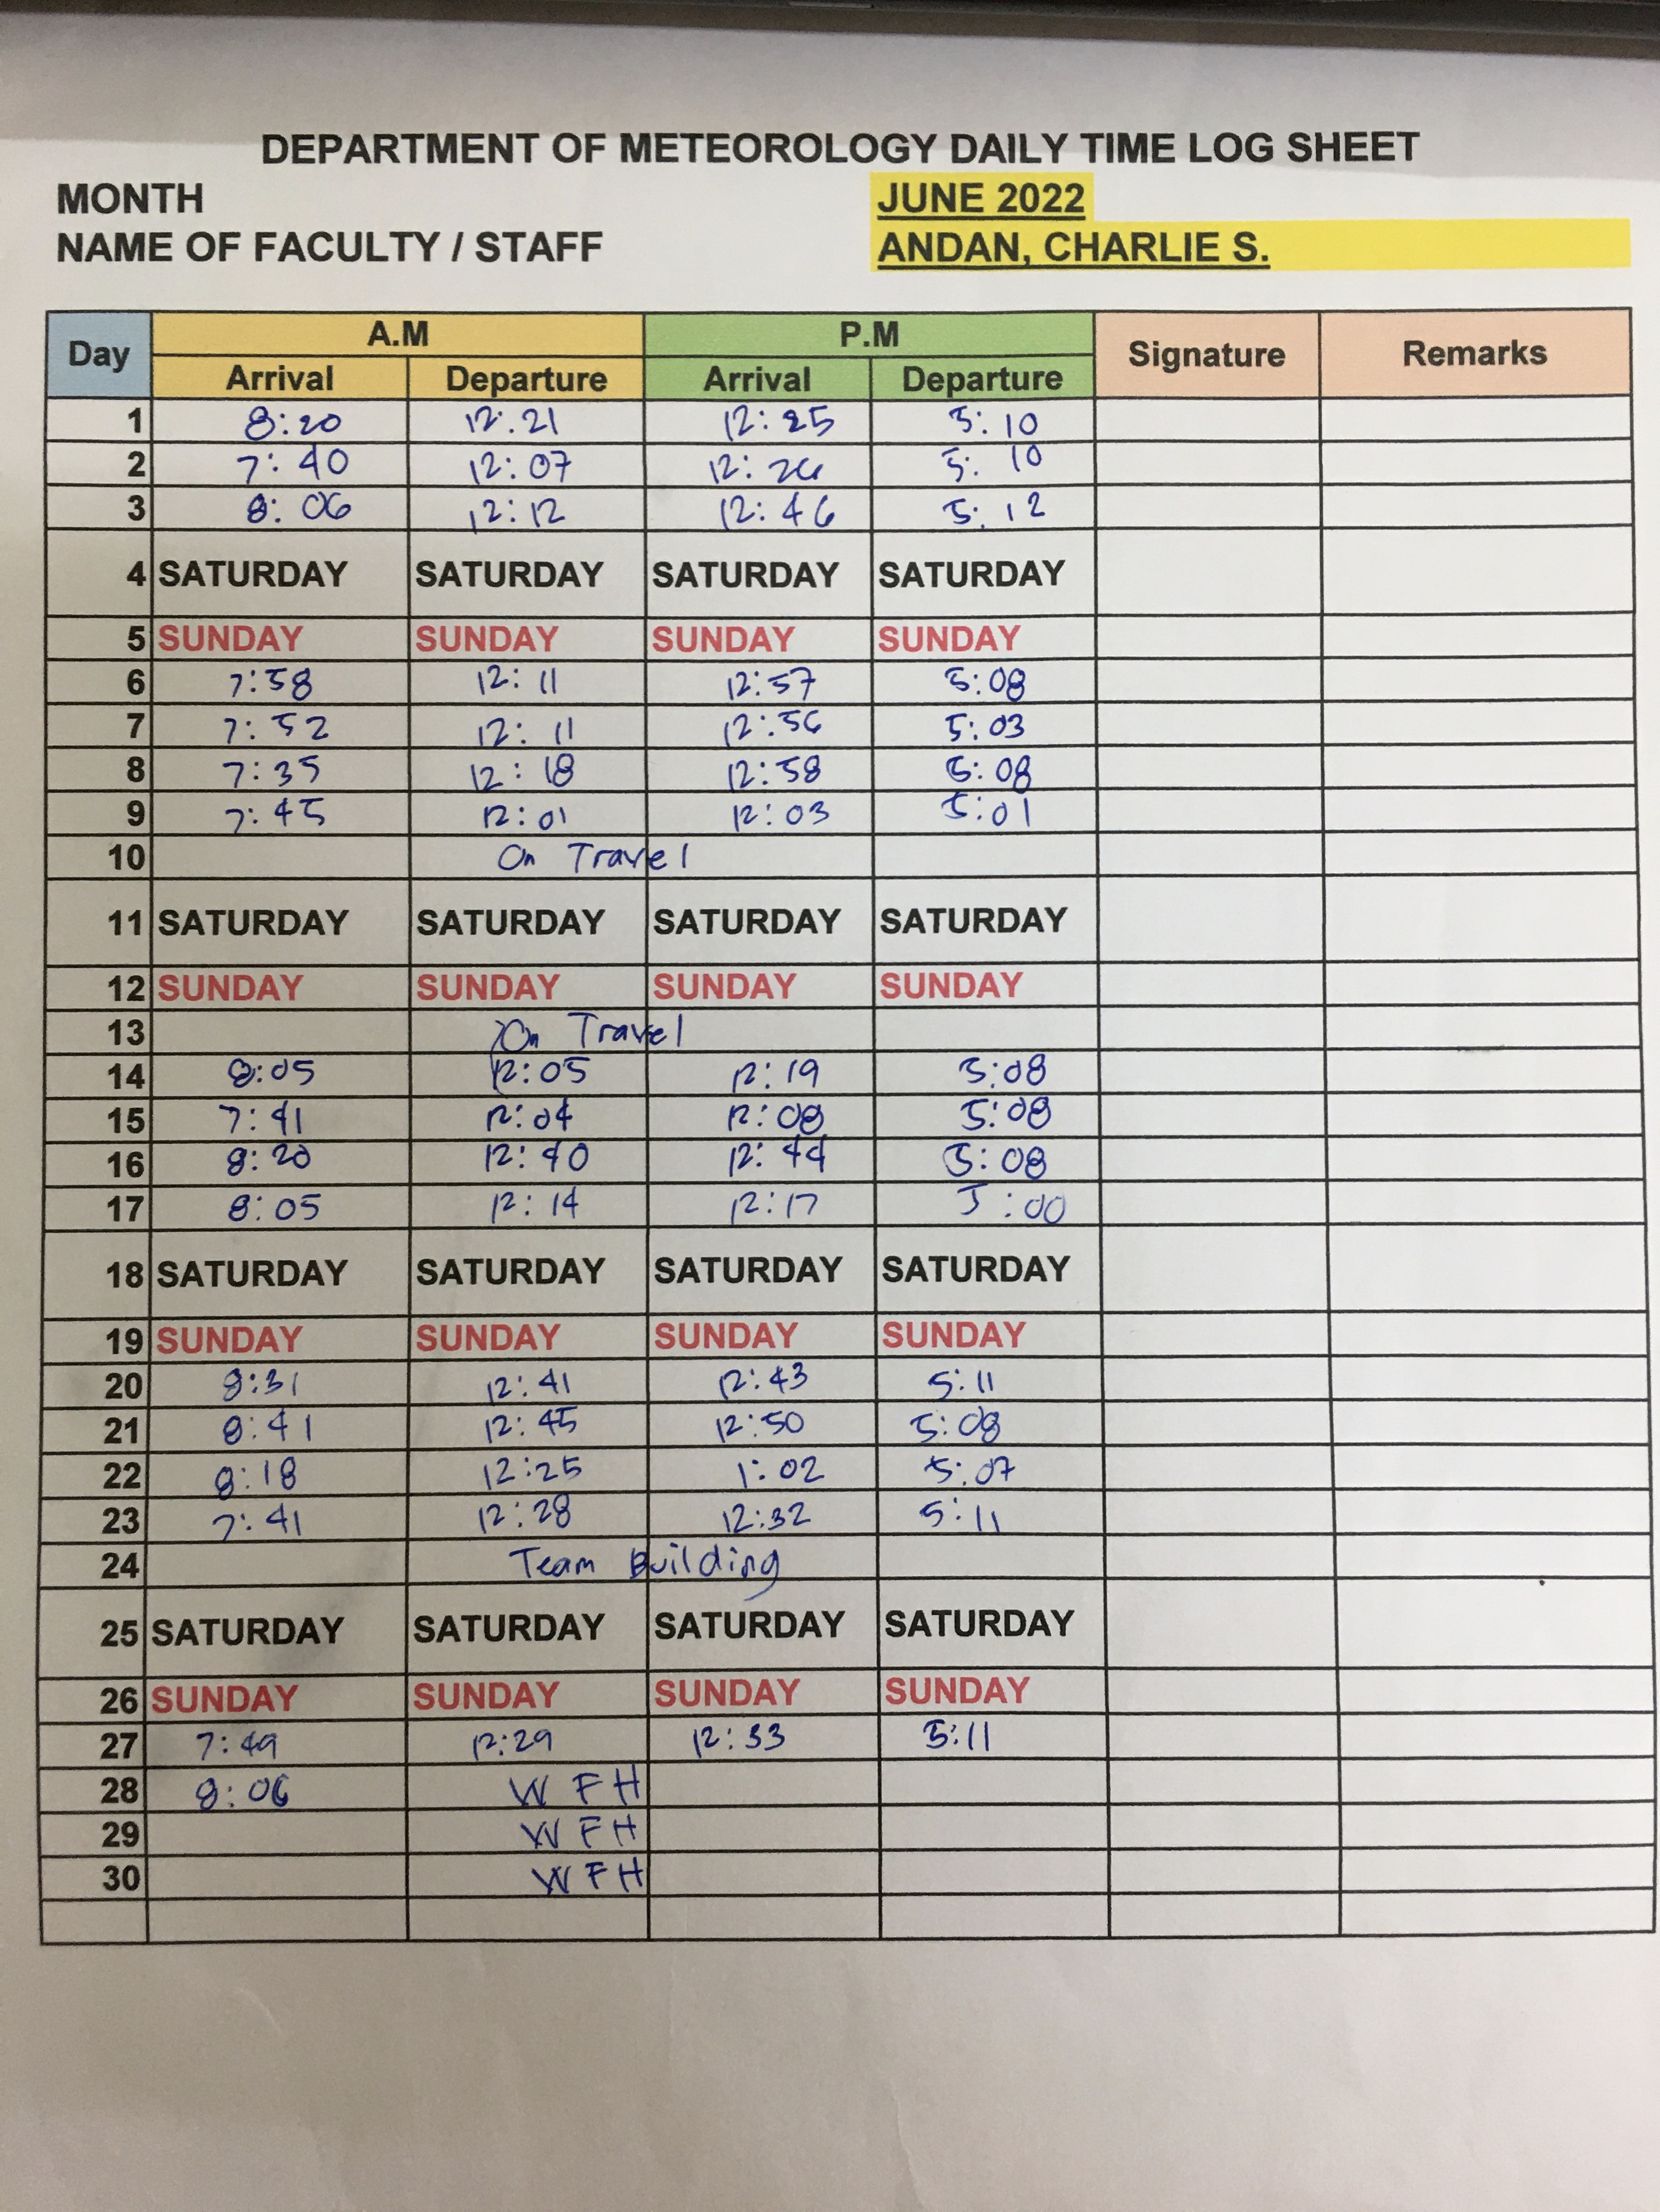 DEPARTMENT OF METEOROLOGY DAILY TIME LOG SHEET
MONTH JUNE 2022
NAME OF FACULTY / STAFF ANDAN, CHARLIE S.
Day A.M P.M Signature Remarks
Arrival Departure Arrival Departure
1 8:20 12:21 12:25 5:10
2 7:40 12:07 12:26 5:10
3 8:06 12:12 12:46 5:12
4 SATURDAY SATURDAY SATURDAY SATURDAY
5 SUNDAY SUNDAY SUNDAY SUNDAY
6 7:58 12:11 12:57 5:08
7 7:52 12:11 12:56 5:03
8 7:35 12:18 12:58 5:08
9 7:45 12:01 12:03 5:01
10 On Travel
11 SATURDAY SATURDAY SATURDAY SATURDAY
12 SUNDAY SUNDAY SUNDAY SUNDAY
13 On Travel
14 8:05 12:05 12:19 5:08
15 7:41 12:04 12:08 5:08
16 8:20 12:40 12:44 5:08
17 8:05 12:14 12:17 5:00
18 SATURDAY SATURDAY SATURDAY SATURDAY
19 SUNDAY SUNDAY SUNDAY SUNDAY
20 8:31 12:41 12:43 5:11
21 8:41 12:45 12:50 5:08
22 8:18 12:25 1:02 5:07
23 7:41 12:28 12:32 5:11
24 Team Building
25 SATURDAY SATURDAY SATURDAY SATURDAY
26 SUNDAY SUNDAY SUNDAY SUNDAY
27 7:49 12:29 12:33 5:11
28 8:06 WFH
29 WFH
30 WFH